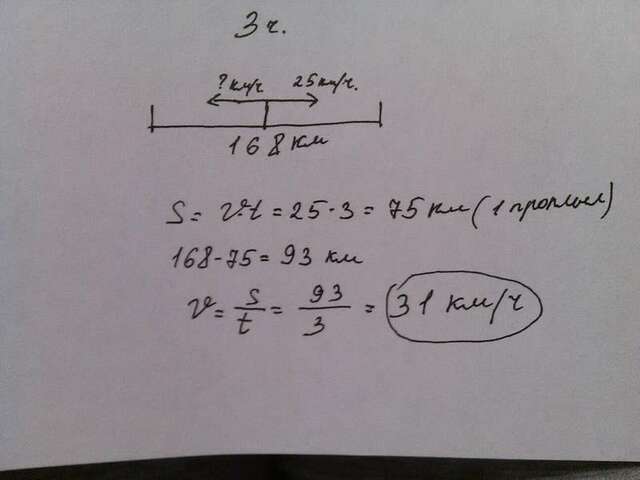 3 ч.
? км/ч 25 км/ч.
168 км
S = v·t = 25 · 3 = 75 км (1 проплыл)
168 - 75 = 93 км
v = s/t = 93/3 = 31 км/ч